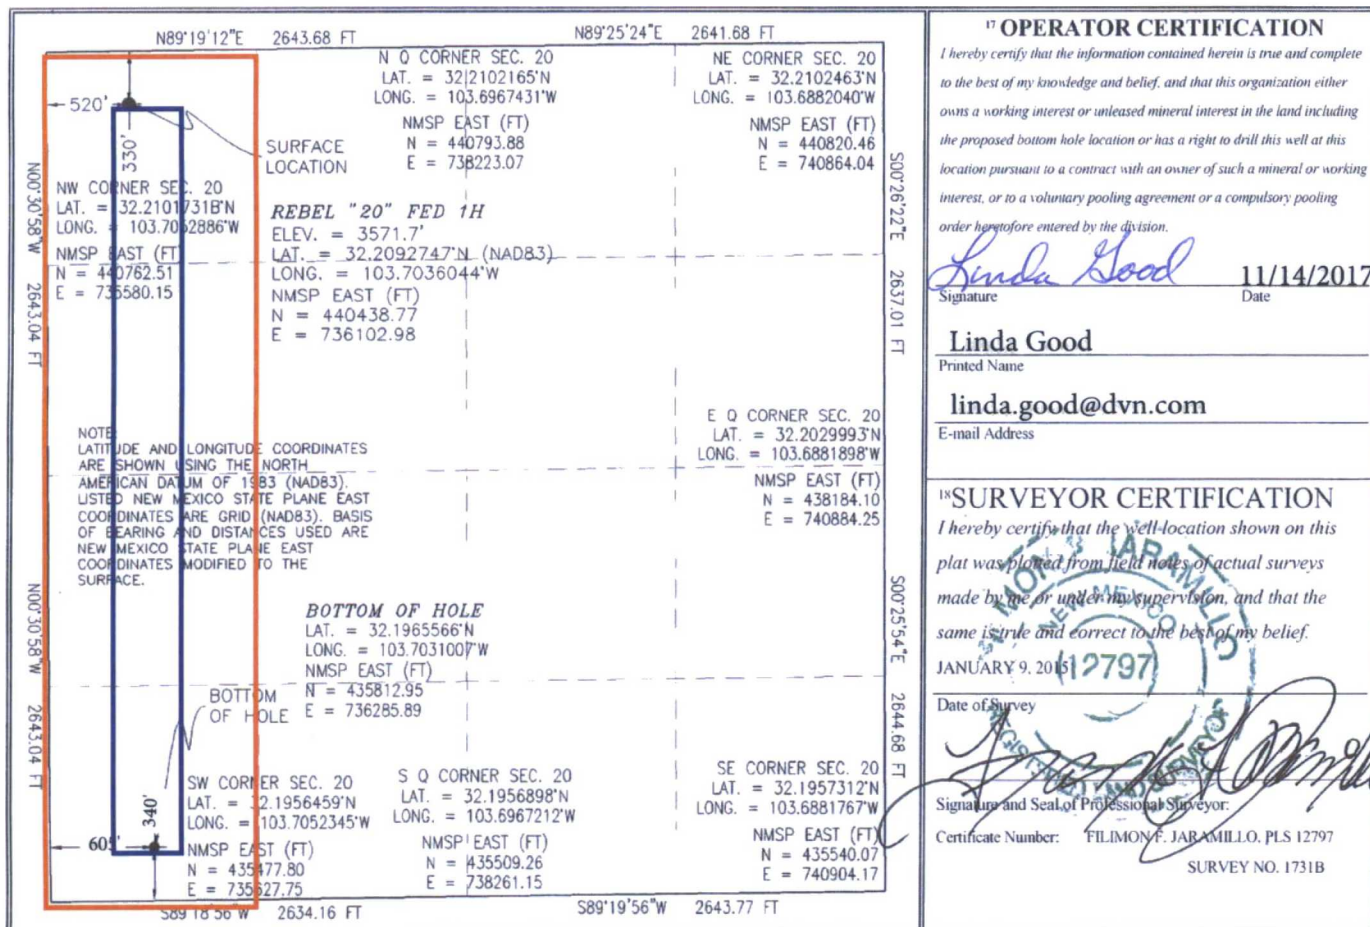 N89°19'12"E 2643.68 FT
N89°25'24"E 2641.68 FT
N Q CORNER SEC. 20
LAT. = 32.2102165°N
LONG. = 103.6967431°W
NMSP EAST (FT)
N = 440793.88
E = 738223.07
NE CORNER SEC. 20
LAT. = 32.2102463°N
LONG. = 103.6882040°W
NMSP EAST (FT)
N = 440820.46
E = 740864.04
520'
330'
SURFACE
LOCATION
NW CORNER SEC. 20
LAT. = 32.2101731°N
LONG. = 103.7052886°W
NMSP EAST (FT)
N = 440762.51
E = 735580.15
REBEL "20" FED 1H
ELEV. = 3571.7'
LAT. = 32.2092747°N (NAD83)
LONG. = 103.7036044°W
NMSP EAST (FT)
N = 440438.77
E = 736102.98
N00°30'58"W 2643.04 FT
S00°26'22"E 2637.01 FT
E Q CORNER SEC. 20
LAT. = 32.2029993°N
LONG. = 103.6881898°W
NMSP EAST (FT)
N = 438184.10
E = 740884.25
NOTE:
LATITUDE AND LONGITUDE COORDINATES
ARE SHOWN USING THE NORTH
AMERICAN DATUM OF 1983 (NAD83).
LISTED NEW MEXICO STATE PLANE EAST
COORDINATES ARE GRID (NAD83). BASIS
OF BEARING AND DISTANCES USED ARE
NEW MEXICO STATE PLANE EAST
COORDINATES MODIFIED TO THE
SURFACE.
BOTTOM OF HOLE
LAT. = 32.1965566°N
LONG. = 103.7031007°W
NMSP EAST (FT)
N = 435812.95
E = 736285.89
BOTTOM
OF HOLE
N00°30'58"W 2643.04 FT
S00°25'54"E 2644.68 FT
SW CORNER SEC. 20
LAT. = 32.1956459°N
LONG. = 103.7052345°W
NMSP EAST (FT)
N = 435477.80
E = 735627.75
340'
605'
S Q CORNER SEC. 20
LAT. = 32.1956898°N
LONG. = 103.6967212°W
NMSP EAST (FT)
N = 435509.26
E = 738261.15
SE CORNER SEC. 20
LAT. = 32.1957312°N
LONG. = 103.6881767°W
NMSP EAST (FT)
N = 435540.07
E = 740904.17
S89°18'56"W 2634.16 FT
S89°19'56"W 2643.77 FT
17 OPERATOR CERTIFICATION
I hereby certify that the information contained herein is true and complete
to the best of my knowledge and belief, and that this organization either
owns a working interest or unleased mineral interest in the land including
the proposed bottom hole location or has a right to drill this well at this
location pursuant to a contract with an owner of such a mineral or working
interest, or to a voluntary pooling agreement or a compulsory pooling
order heretofore entered by the division.
Linda Good 11/14/2017
Signature Date
Linda Good
Printed Name
linda.good@dvn.com
E-mail Address
18 SURVEYOR CERTIFICATION
I hereby certify that the well location shown on this
plat was plotted from field notes of actual surveys
made by me or under my supervision, and that the
same is true and correct to the best of my belief.
JANUARY 9, 2015
Date of Survey
JARAMILLO
NEW MEXICO
12797
Signature and Seal of Professional Surveyor:
Certificate Number: FILIMON F. JARAMILLO, PLS 12797
SURVEY NO. 1731B